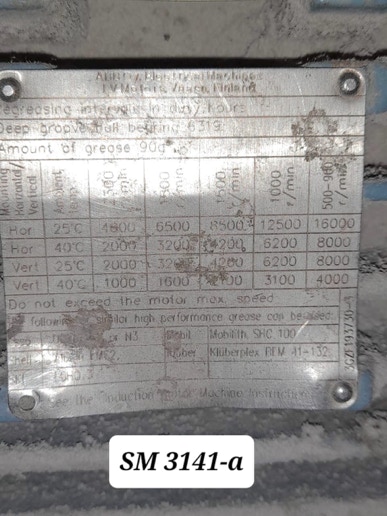 LV Motors, Vaasa, Finland
Regreasing intervals in duty hours
Deep groove ball bearing 6319
Amount of grease 90g
Mounting Horizontal/ Vertical Ambient r/min 1500 r/min r/min 1000 r/min 500-900 r/min
Hor 25°C 4600 6500 8500 12500 16000
Hor 40°C 2000 3200 4200 6200 8000
Vert 25°C 2000 3200 4200 6200 8000
Vert 40°C 1000 1600 3100 4000
Do not exceed the motor max. speed
following similar high performance grease can be used:
or N3 Mobil Mobilith SHC 100
Shell Klüber Klüberplex BEM 41-132
See the Induction Motor Machine Instructions
SM 3141-a